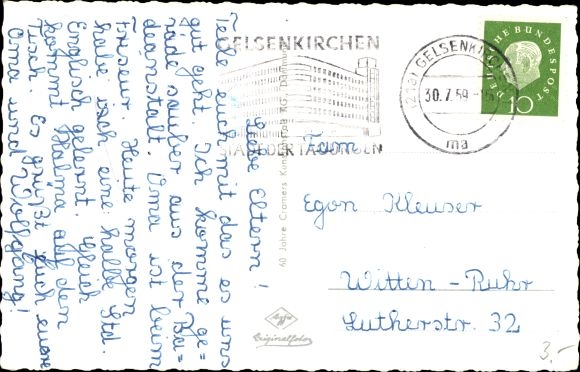 Liebe Eltern!
Teile euch mit das es uns
gut geht. Ich komme ge=
rade sauber aus der Ba=
deanstalt. Oma ist beim
Friseur. Heute morgen
habe ich eine halbe Std.
Englisch gelernt. Gleich
kommt Halma auf den
Tisch. Es grüßt Euch eure
Oma und Wolfgang!
GELSENKIRCHEN
STADT DER TAGUNGEN
GELSENKIRCHEN
30.7.59
ma
DEUTSCHE BUNDESPOST
10
Fam
Egon Kleuser
Witten-Ruhr
Lutherstr. 32
40 Jahre Cramers Kunstanstalt KG., Dortmund
Agfa
Originalfoto
3.-